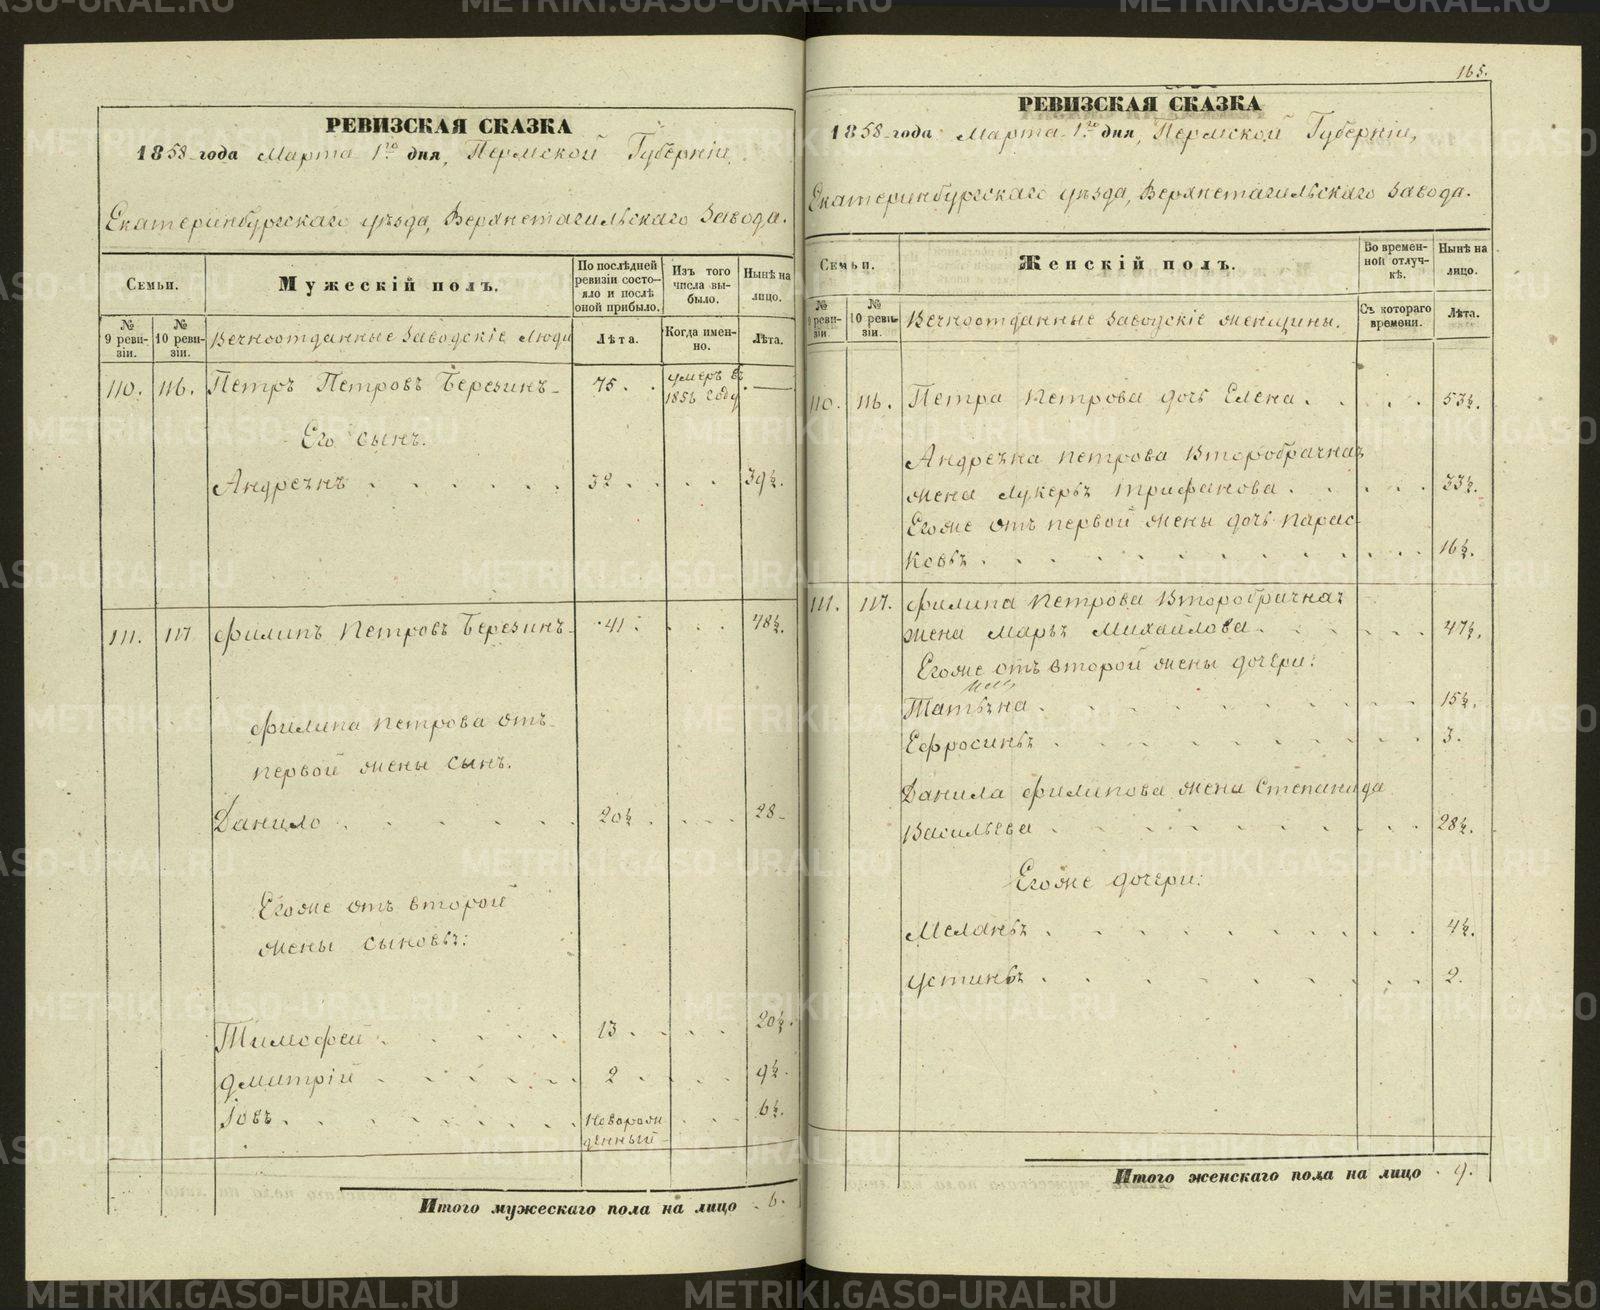 РЕВИЗСКАЯ СКАЗКА
1858 года Марта 1го дня, Пермской Губерніи,
Екатеринбургскаго уѣзда, Верхнетагильскаго Завода.
Семьи.
Мужескій полъ.
По послѣдней ревизіи состояло и послѣ оной прибыло.
Изъ того числа выбыло.
Нынѣ на лицо.
№ 9 ревизіи.
№ 10 ревизіи.
Вѣчноотданные Заводскіе Люди
Лѣта.
Когда именно.
Лѣта.
110. 116. Петръ Петровъ Березинъ 75. умеръ въ 1856 году —
Его сынъ.
Андреянъ 32 39½.
111. 117 Филипъ Петровъ Березинъ 41. 48½.
Филипа Петрова отъ
первой жены сынъ.
Данило 20½ 28
Егоже отъ второй
жены сыновья:
Тимофей 13 20½.
Дмитрій 2 9½.
Іовъ Новорожденный 6½.
Итого мужескаго пола на лицо 6.
165.
РЕВИЗСКАЯ СКАЗКА
1858 года Марта 1го дня, Пермской Губерніи,
Екатеринбургскаго уѣзда, Верхнетагильскаго Завода.
Семьи.
Женскій полъ.
Во временной отлучкѣ.
Нынѣ на лицо.
№ 9 ревизіи.
№ 10 ревизіи.
Вѣчноотданные Заводскіе женщины.
Съ котораго времени.
Лѣта.
110. 116. Петра Петрова дочь Елена 53½.
Андреяна Петрова Второбрачная
жена Лукерья Трифанова 33½.
Егоже отъ первой жены дочь Парас-
ковья 16½.
111. 117. Филипа Петрова Второбрачная
жена Марья Михайлова 47½.
Егоже отъ второй жены дочери:
Татьяна 15½.
Ефросинья 3.
Данила Филипова жена Степанида
Васильева 28½.
Егоже дочери:
Меланья 4½.
Устинья 2.
Итого женскаго пола на лицо 9.
METRIKI.GASO-URAL.RU